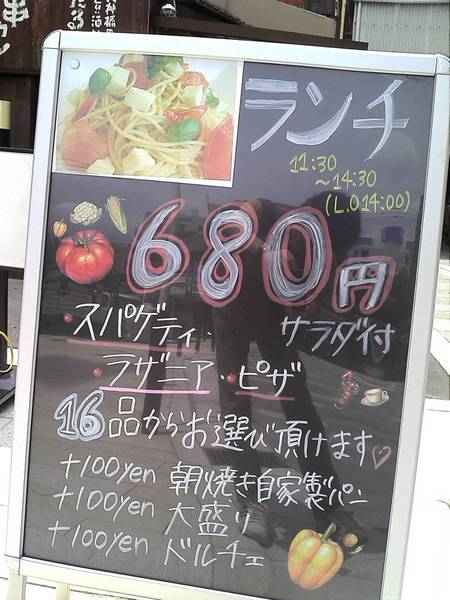 ランチ
11:30
～14:30
(L.O14:00)
680円
スパゲティ・
サラダ付
ラザニア・ピザ
16品からお選び頂けます♡
+100yen 朝焼き自家製パン
+100yen 大盛り
+100yen ドルチェ